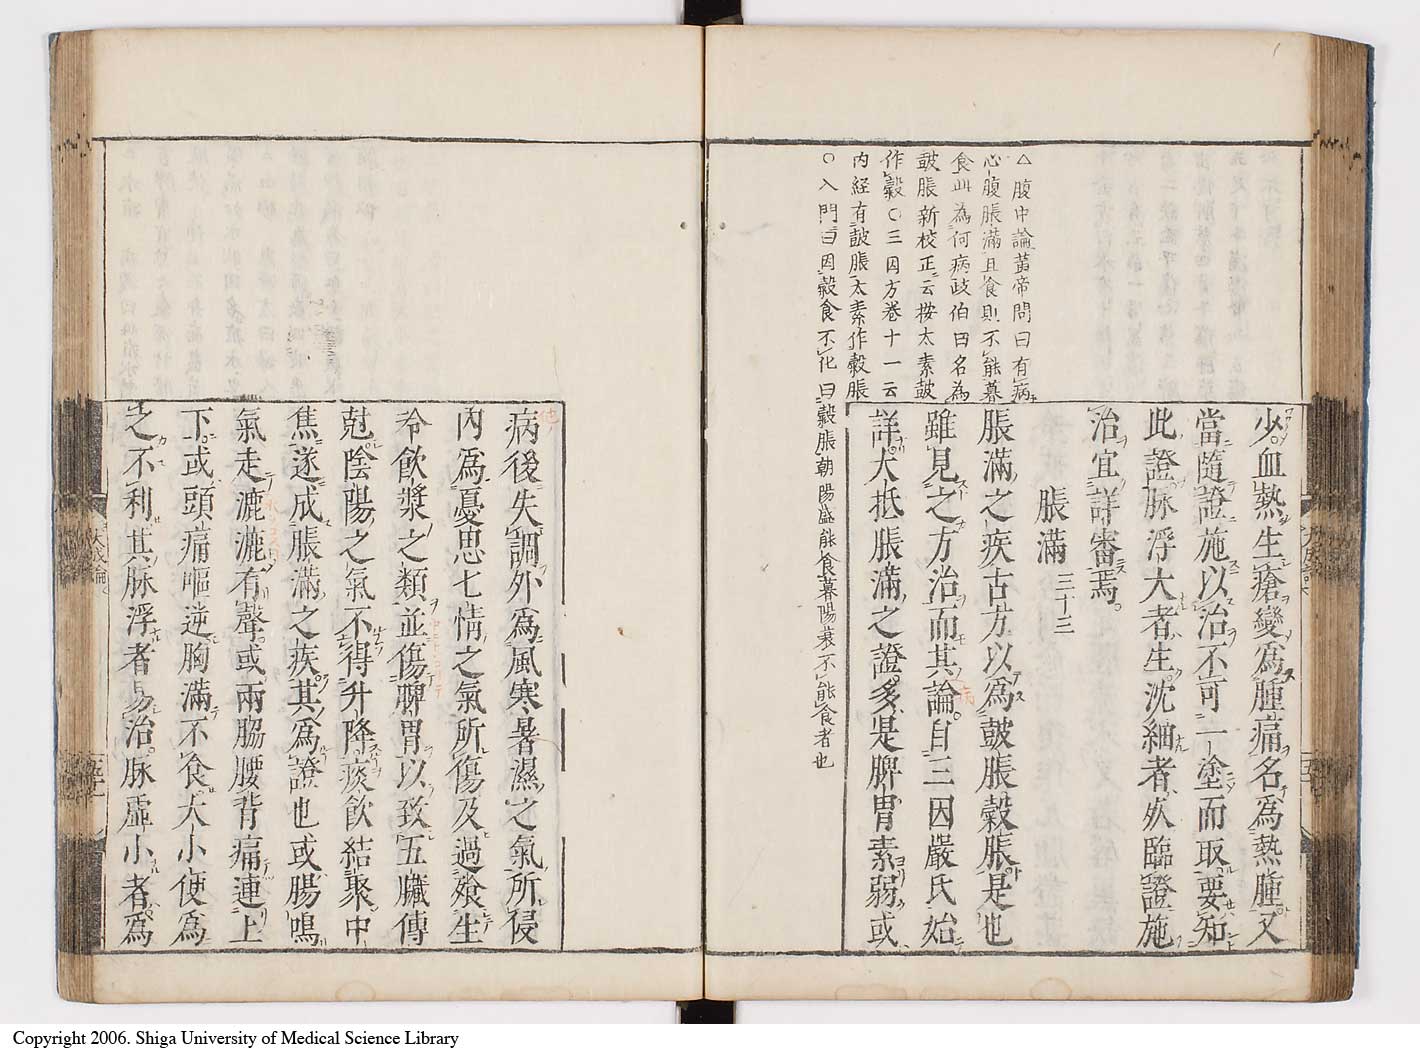 少血熱生瘡變爲腫痛名爲熱腫又
當隨證施以治不可一塗而取要知
此證脉浮大者生沈細者死臨證施
治宜詳審焉
脹滿 三十三
脹滿之疾古方以爲鼓脹穀脹是也
雖見之方治而其論自三因嚴氏始
詳大抵脹滿之證多是脾胃素弱或
△腹中論黃帝問曰有病
心腹脹滿且食則不能暮
食此為何病歧伯曰名為
鼓脹新校正云按太素鼓
作穀○三因方卷十一云
内経有鼓脹太素作穀脹
○入門曰因穀食不化曰穀脹朝陽盛能食暮陽衰不能食者也
病後失調外爲風寒暑濕之氣所侵
内爲憂思七情之氣所傷及過飡生
冷飲漿之類並傷脾胃以致五臟傳
尅陰陽之氣不得升降痰飲結聚中
焦遂成脹滿之疾其爲證也或腸鳴
氣走漉漉有聲或兩脇腰背痛連上
下或頭痛嘔逆胸滿不食大小便爲
之不利其脉浮者易治脉虛小者爲
大成論
Copyright 2006. Shiga University of Medical Science Library